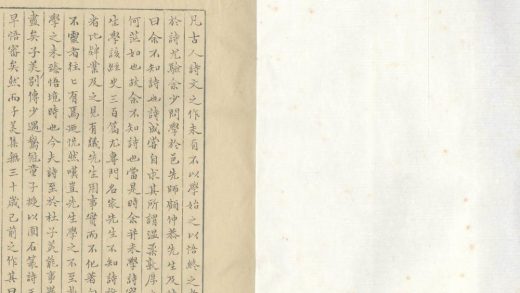 凡古人詩文之作未有不以學始之以悟終之
於詩尤驗余少問學於邑先師顧仲恭先生及
曰余不知詩也詩誠當自求其所謂溫柔敦厚
何茫如也故余不知詩也當是時余并未學詩
生學該經史三百篇尤專門名家先生不知詩
者比肄業及之見有譏先生用事實而不化著
不靈者往往有焉輒慨然嘆豈先生學之不至
學之未臻悟境時也今夫詩至於杜子美能事
盡矣子美別傳少遇童子授以圓石篆詩
早悟審矣然而子美集無三十歲已前之作其曰